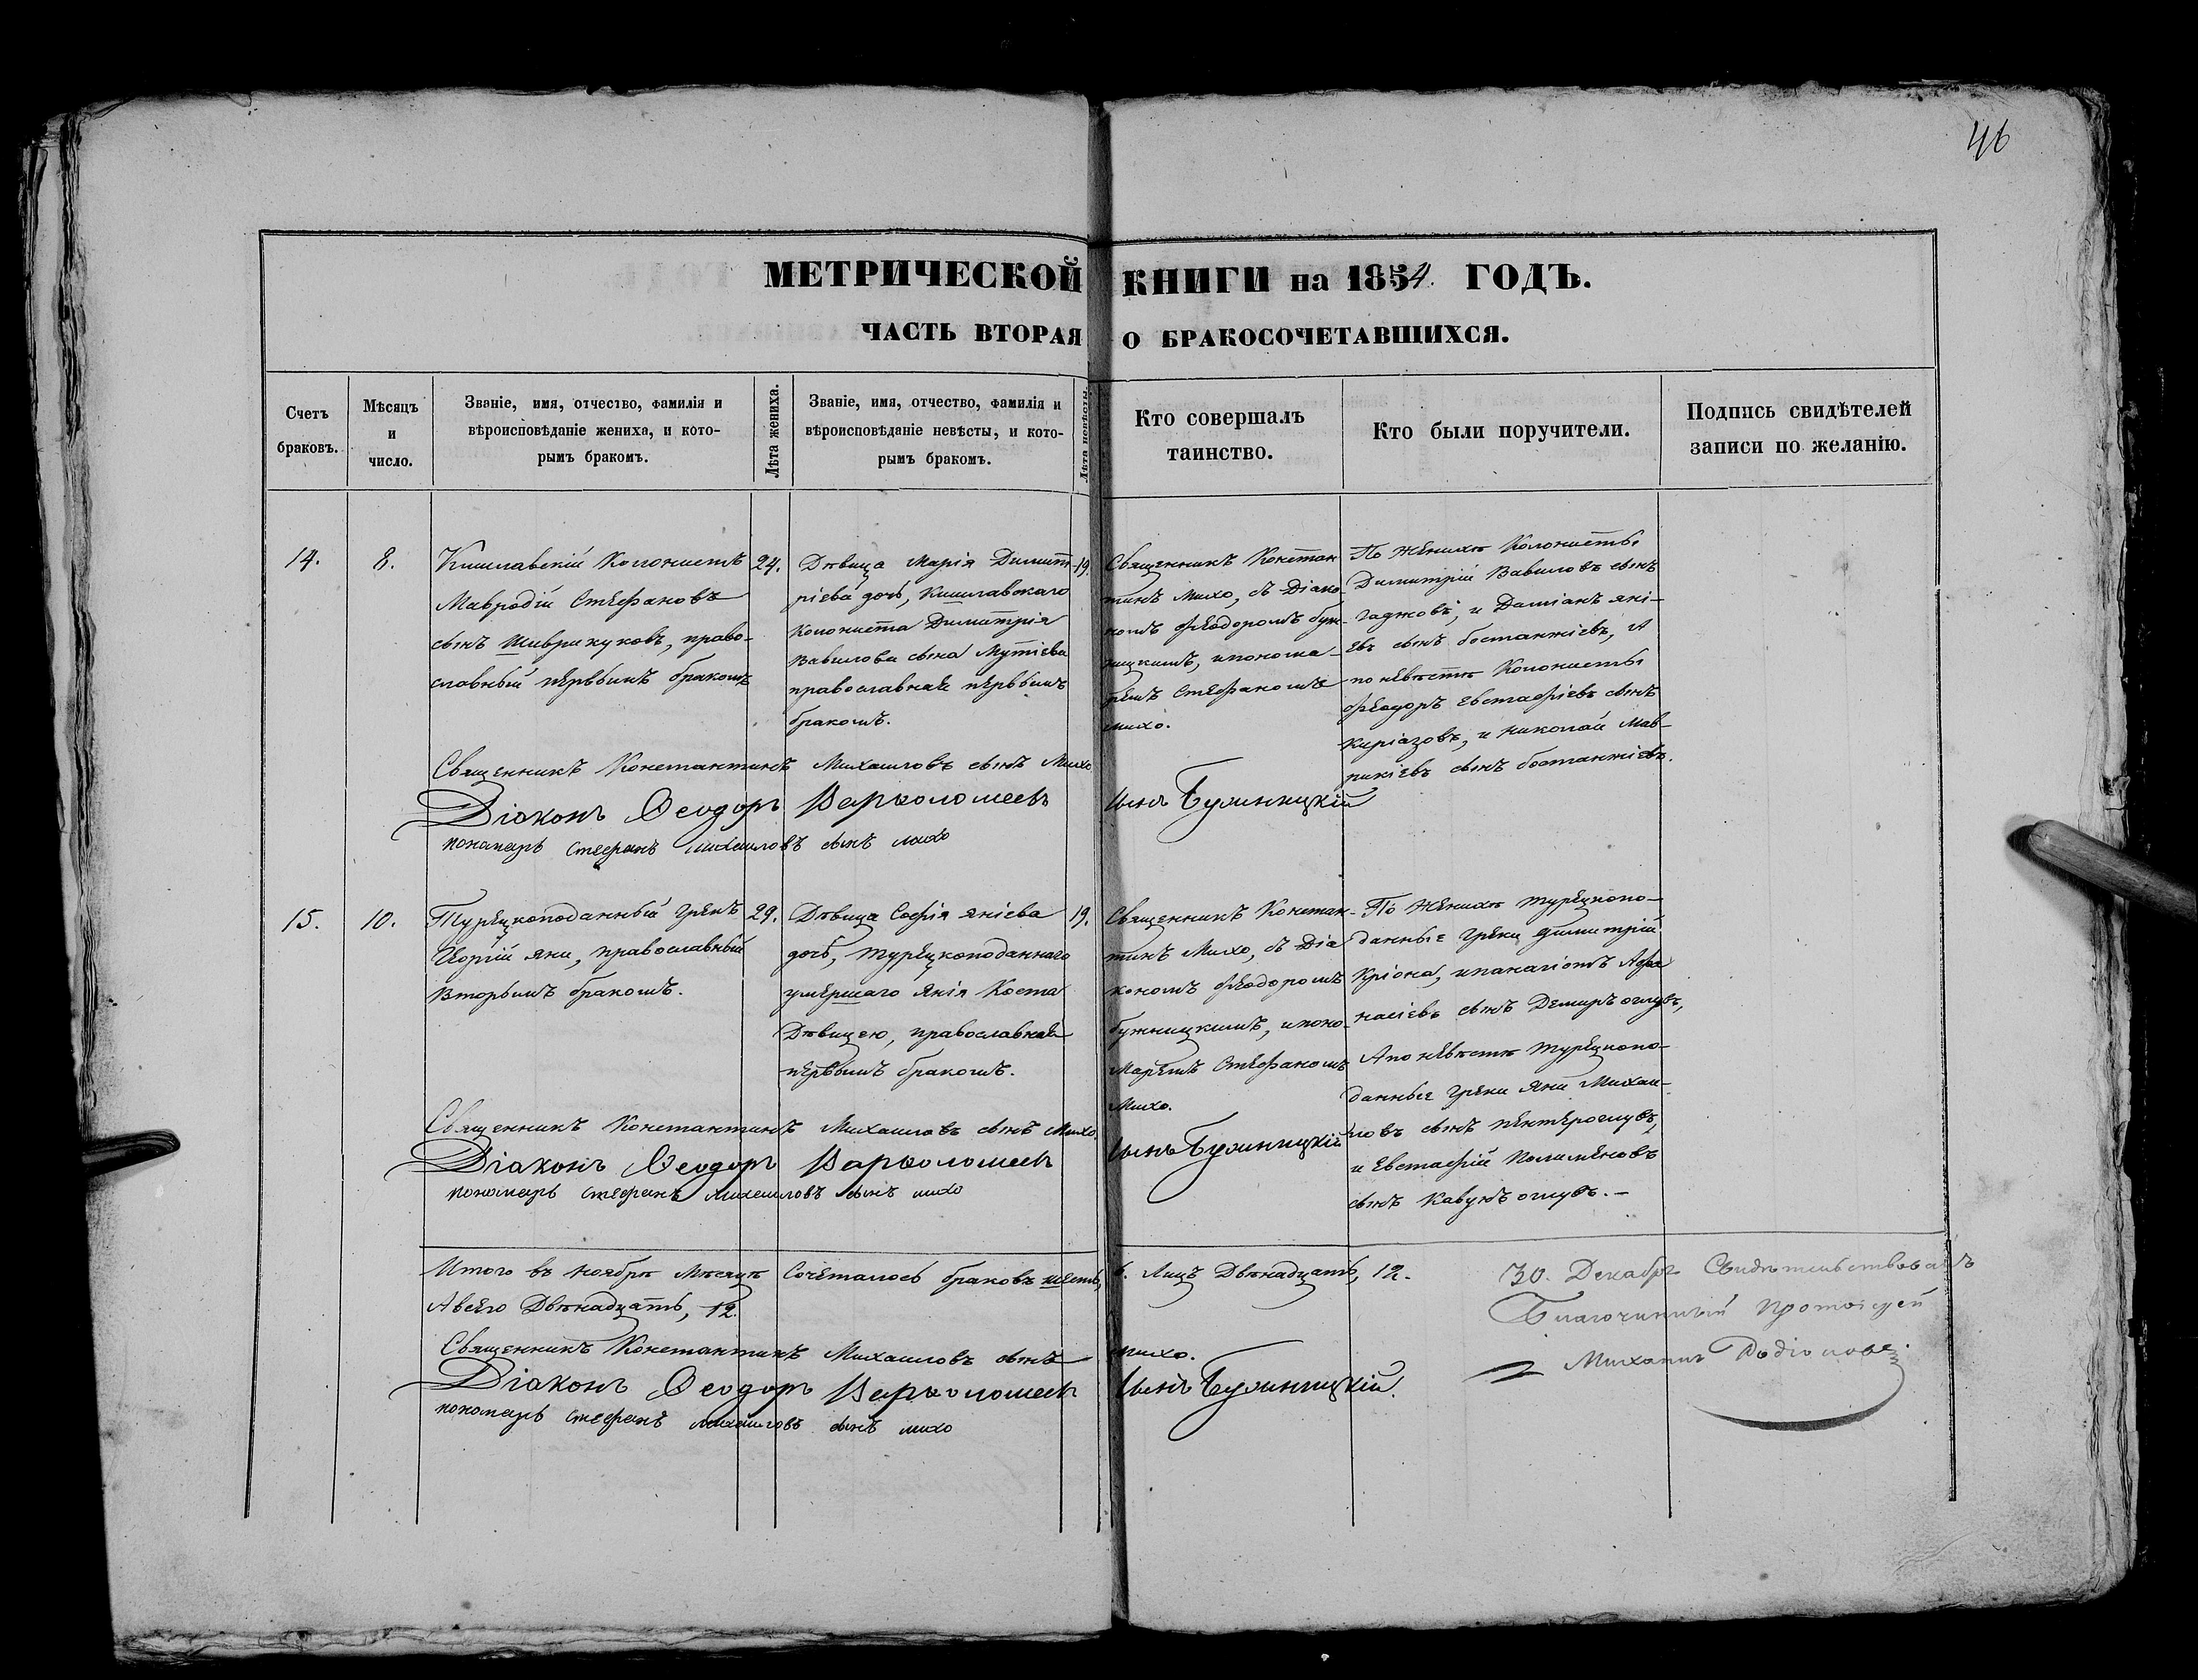 46
МЕТРИЧЕСКОЙ КНИГИ на 1854. ГОДЪ.
ЧАСТЬ ВТОРАЯ О БРАКОСОЧЕТАВШИХСЯ.
Счетъ
браковъ.
Мѣсяцъ
и
число.
Званіе, имя, отчество, фамилія и
вѣроисповѣданіе жениха, и кото-
рымъ бракомъ.
Лѣта жениха.
Званіе, имя, отчество, фамилія и
вѣроисповѣданіе невѣсты, и кото-
рымъ бракомъ.
Лѣта невѣсты.
Кто совершалъ
таинство.
Кто были поручители.
Подпись свидѣтелей
записи по желанію.
14.
8.
Кишлавскій Колонистъ
Мавродій Стефановъ
сынъ Шиврикуковъ, право-
славный первымъ бракомъ
24.
Дѣвица Марія Димит-
ріева дочь, Кишлавскаго
Колониста Димитрія
Вавилова сына Мутіева
православная первымъ
бракомъ.
19.
Священникъ Констан
тинъ Михо, съ Діако-
номъ Феодоромъ Буж-
ницкимъ, и понома-
ремъ Стефаномъ
Михо.
По Женихѣ Колонисты
Димитрій Вавиловъ сынъ
Гаджовъ, и Даміанъ Яні-
евъ сынъ Бостанжіевъ, А
по невѣстѣ Колонисты
Феодоръ Евстафіевъ сынъ
Киріазовъ, и Николай Мав-
рикіевъ сынъ Бостанжіевъ.
Священникъ Константинъ Михаиловъ сынъ Михо
Діаконъ Ѳеодоръ Варѳоломеевъ сынъ Бужницкій
пономарь Стефанъ Михаиловъ сынъ Михо
15.
10.
Турецкоподанный Грекъ
Георгій Яни, православный
Вторымъ бракомъ.
29.
Дѣвица Софія Яніева
дочь, Турецкоподаннаго
умершаго Янія Коста
Дѣвицею, православная
первымъ бракомъ.
19.
Священникъ Констан-
тинъ Михо, съ Діа
кономъ Феодоромъ
Бужницкимъ, и поно-
маремъ Стефаномъ
Михо.
По Женихѣ Турецкопо-
данные Греки Димитрій
Кріона, и Панагіотъ Афа
насіевъ сынъ Демиръ оглувъ,
А по невѣстѣ Турецкопо-
данные Греки Яни Михаи-
ловъ сынъ Пентероглувъ,
и Евстафій Полименовъ
сынъ Кавунъ оглувъ. –
Священникъ Константинъ Михаиловъ сынъ Михо.
Діаконъ Ѳеодоръ Варѳоломеевъ сынъ Бужницкій
пономарь Стефанъ Михаиловъ сынъ Михо
Итого въ Ноябрѣ Мѣсяцѣ Сочеталось браковъ шесть, 6. Лицъ Двѣнадцать, 12.
А всего Двѣнадцать, 12.
Священникъ Константинъ Михаиловъ сынъ Михо.
Діаконъ Ѳеодоръ Варѳоломеевъ сынъ Бужницкій.
пономарь Стефанъ Михаиловъ сынъ Михо
30. Декабря Свидѣтельствовалъ
Благочинный Протоіерей
Михаилъ Родіоновъ